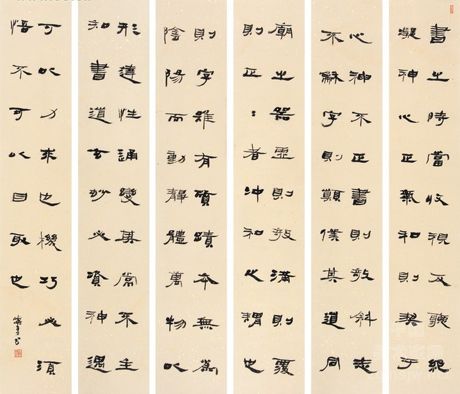 書之時當收視反聽絕
凝神心正氣和則契于
心神不正書則敧斜志
不龢字則顛仆其道同
廟之器虛則敧滿則覆
則正:者沖和之謂也
則字雖有質蹟本無為
陰陽而動靜體萬物以
形達性通變其常不主
知書道玄妙必資神遇
可以力求也機巧必須
悟不可以目取也